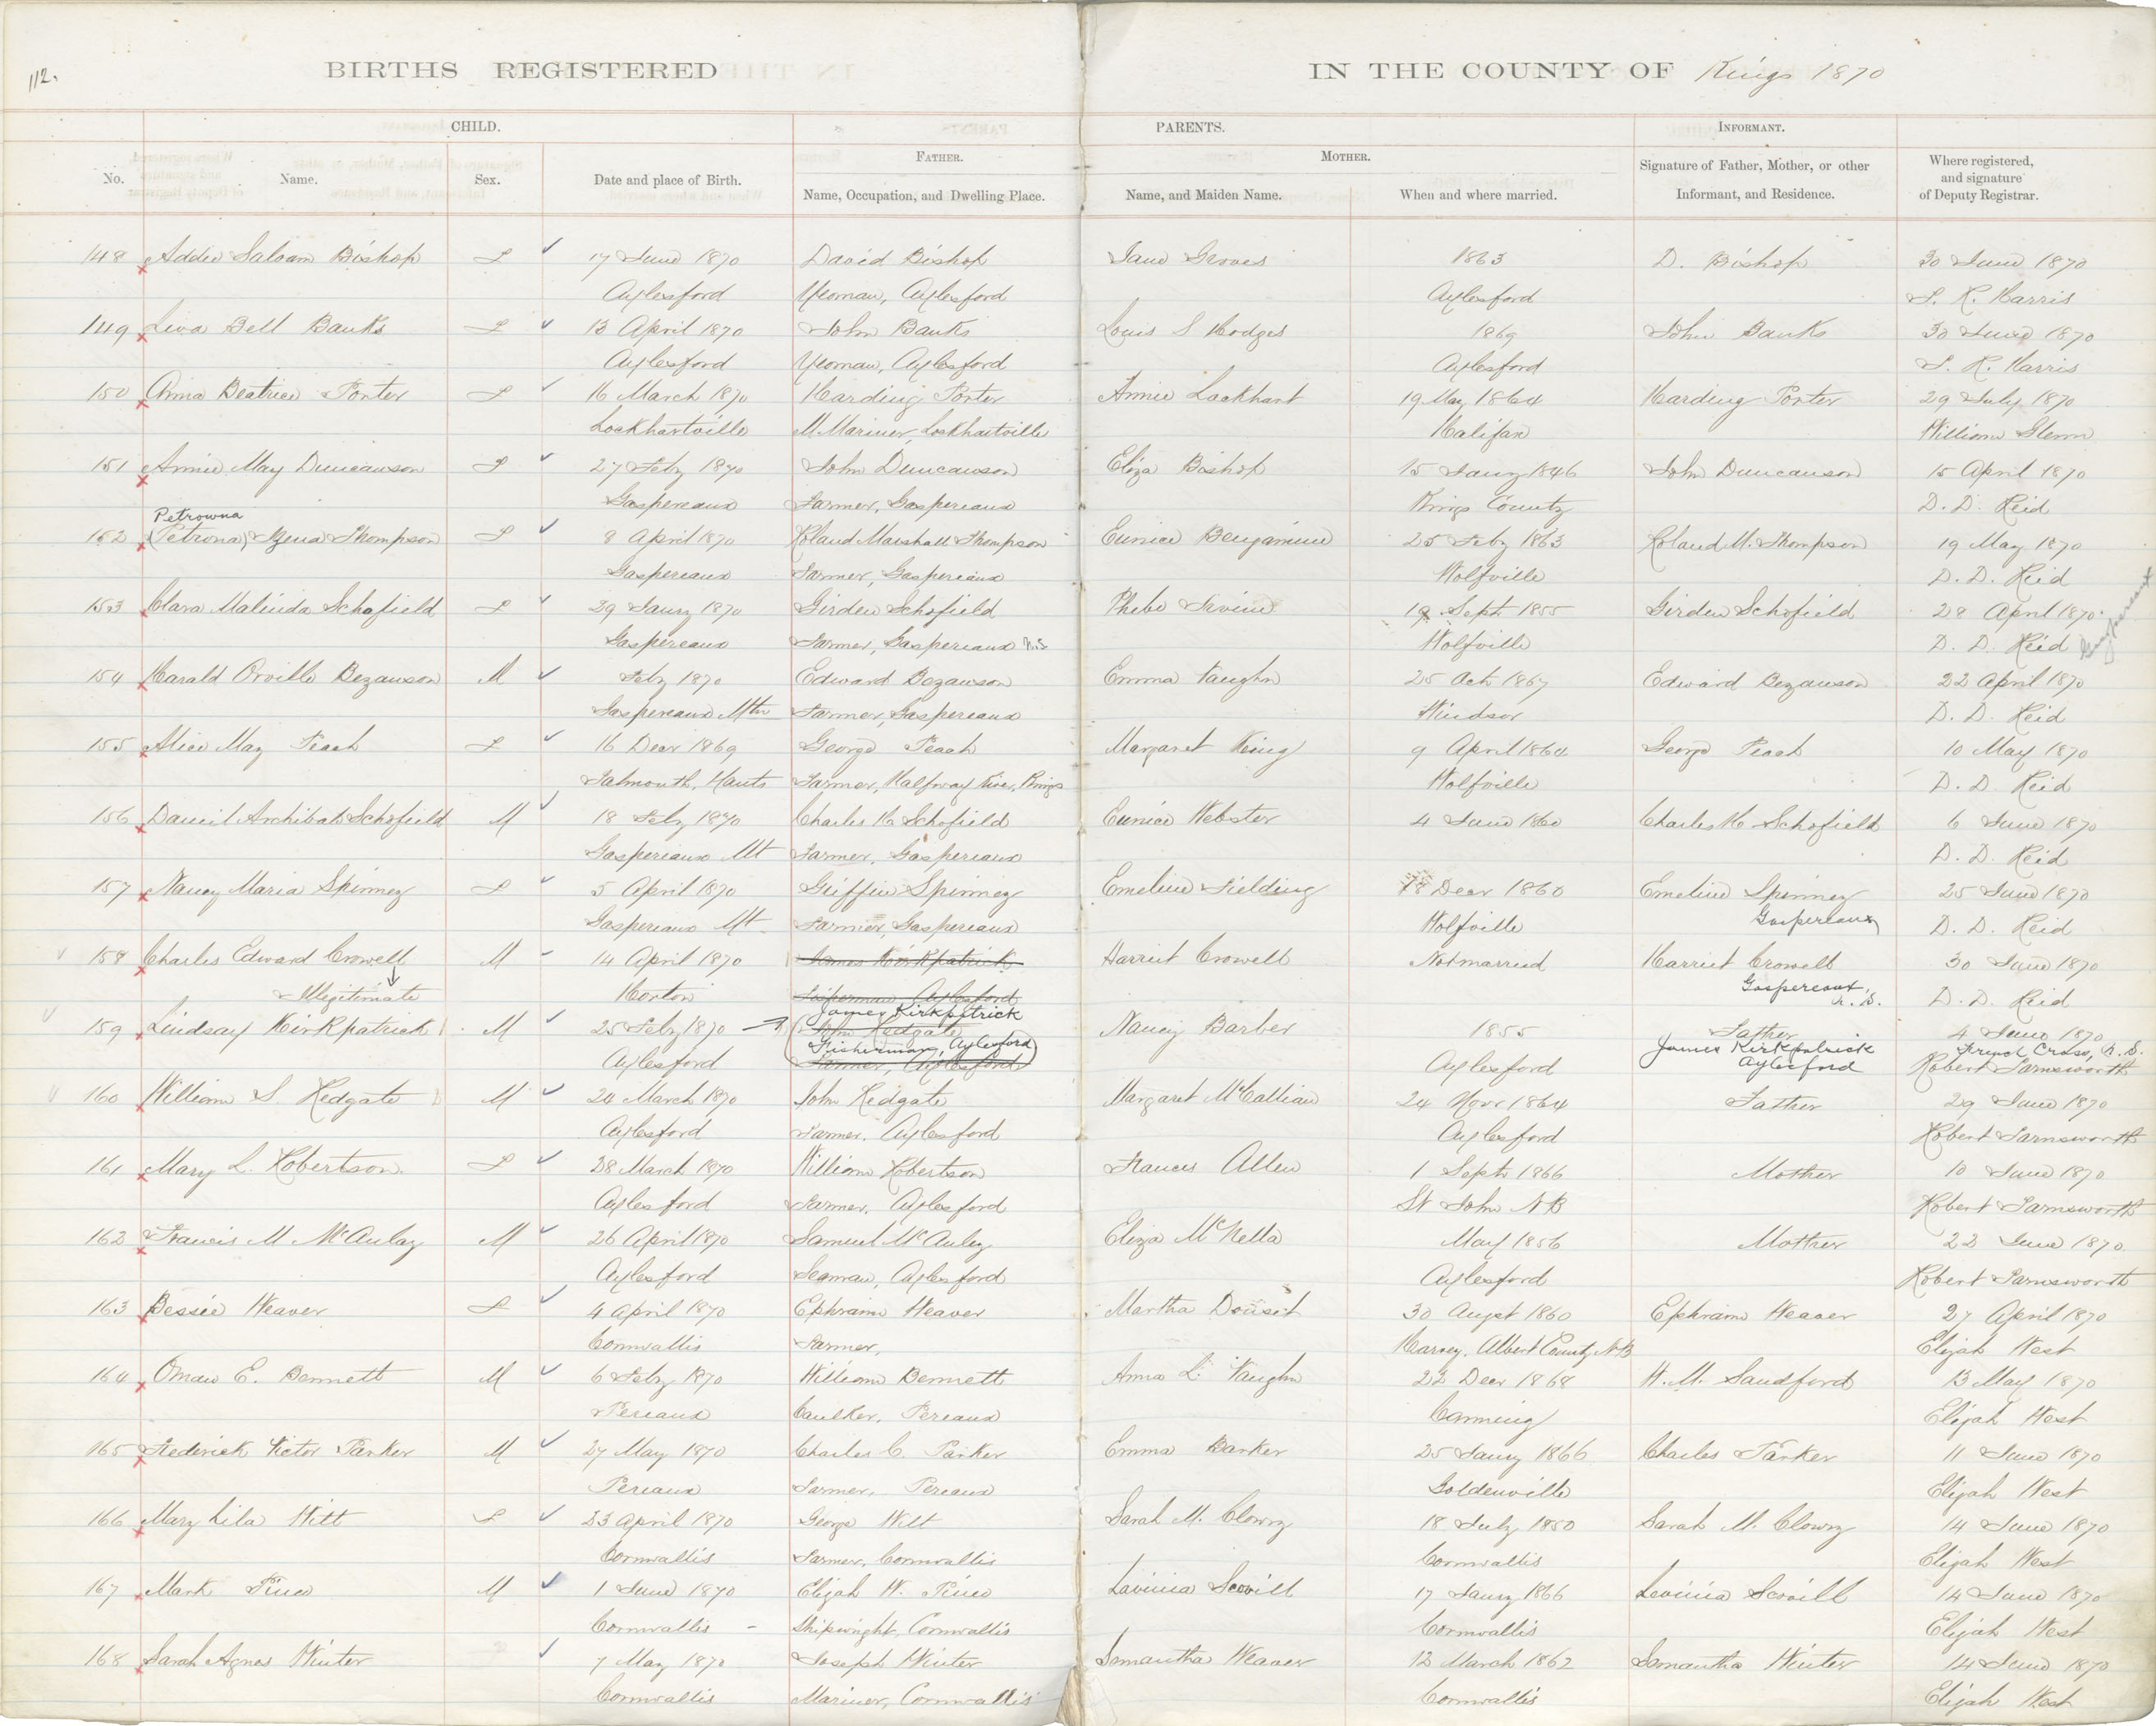 112.
BIRTHS REGISTERED IN THE COUNTY OF Kings 1870
CHILD. PARENTS. INFORMANT.
FATHER. MOTHER.
No. Name. Sex. Date and place of Birth. Name, Occupation, and Dwelling Place. Name, and Maiden Name. When and where married. Signature of Father, Mother, or other Informant, and Residence. Where registered, and signature of Deputy Registrar.
148 Addie Salsam Bishop F 17 June 1870 David Bishop Jane Groves 1863 D. Bishop 30 June 1870
Aylesford Yeoman, Aylesford Aylesford S. R. Harris
149 Bell Banks F 13 April 1870 John Banks Louis S Hodges 1869 John Banks 30 June 1870
Aylesford Yeoman, Aylesford Aylesford S. R. Harris
150 Anna Beatrice Porter F 16 March 1870 Harding Porter Annie Lockhart 19 May 1864 Harding Porter 29 July 1870
Lockhartville M. Mariner, Lockhartville Halifax William Glenn
151 Annie May Duncanson F 27 Feby 1870 John Duncanson Eliza Bishop 15 Jany 1846 John Duncanson 15 April 1870
Gaspereaux Farmer, Gaspereaux Kings County D. D. Reid
Petrowna
152 (Petrona) Thompson F 8 April 1870 Roland Marshall Thompson Eunice Benjamine 25 Feby 1863 Roland M. Thompson 19 May 1870
Gaspereaux Farmer, Gaspereaux Wolfville D. D. Reid
153 Clara Malinda Schofield F 29 Jany 1870 Girden Schofield Phebe Irvine 19 Sept 1855 Girden Schofield 28 April 1870
Gaspereaux Farmer, Gaspereaux N.S Wolfville D. D. Reid Gaspereaux
154 Harald Orville Bezanson M Feby 1870 Edward Bezanson Emma Vaughn 25 Oct 1867 Edward Bezanson 22 April 1870
Gaspereaux Mtn Farmer, Gaspereaux Windsor D. D. Reid
155 Alice May Peach F 16 Decr 1869 George Peach Margaret King 9 April 1864 George Peach 10 May 1870
Falmouth, Hants Farmer, Halfway River, Kings Wolfville D. D. Reid
156 Daniel Archibald Schofield M 18 Feby 1870 Charles H Schofield Eunice Webster 4 June 1860 Charles H Schofield 6 June 1870
Gaspereaux Mt Farmer, Gaspereaux D. D. Reid
157 Nancy Maria Spinney F 5 April 1870 Griffin Spinney Emeline Fielding 18 Decr 1860 Emeline Spinney 25 June 1870
Gaspereaux Mt. Farmer, Gaspereaux Wolfville Gaspereaux D. D. Reid
158 Charles Edward Crowell M 14 April 1870 James Kirkpatrick Harriet Crowell Not married Harriet Crowell 30 June 1870
Illegitimate Horton Fisherman, Aylesford Gaspereaux, N. S. D. D. Reid
James Kirkpatrick
159 Lindsay Kirkpatrick M 25 Feby 1870 John Redgate Nancy Barber 1855 Father 4 June 1870
Fisherman, Aylesford James Kirkpatrick French Cross, N. S.
Aylesford Farmer, Aylesford Aylesford Aylesford Robert Farnsworth
160 William S. Redgate M 24 March 1870 John Redgate Margaret McCallian 24 Novr 1864 Father 29 June 1870
Aylesford Farmer, Aylesford Aylesford Robert Farnsworth
161 Mary L. Robertson F 28 March 1870 William Robertson Frances Allen 1 Sept 1866 Mother 10 June 1870
Aylesford Farmer, Aylesford St John NB Robert Farnsworth
162 Francis M McAulay M 26 April 1870 Samuel McAuley Eliza McNella May 1856 Mother 22 June 1870
Aylesford Seaman, Aylesford Aylesford Robert Farnsworth
163 Bessie Weaver F 4 April 1870 Ephraim Weaver Martha Dousit 30 Augst 1860 Ephraim Weaver 27 April 1870
Cornwallis Farmer, Harvey, Albert County NB Elijah West
164 Oman E. Bennett M 6 Feby 1870 William Bennett Anna L. Vaughn 22 Decr 1868 H. M. Sandford 13 May 1870
Pereaux Caulker, Pereaux Canning Elijah West
165 Frederick Victor Parker M 27 May 1870 Charles C. Parker Emma Barker 25 Jany 1866 Charles Parker 11 June 1870
Pereaux Farmer, Pereaux Goldenville Elijah West
166 Mary Lila Wilt F 23 April 1870 George Wilt Sarah M. Clowry 18 July 1850 Sarah M. Clowry 14 June 1870
Cornwallis Farmer, Cornwallis Cornwallis Elijah West
167 Mark Pineo M 1 June 1870 Elijah W. Pineo Lavinia Scovill 17 Jany 1866 Lavinia Scovill 14 June 1870
Cornwallis - Shipwright, Cornwallis Cornwallis Elijah West
168 Sarah Agnes Winter 7 May 1870 Joseph Winter Samantha Weaver 12 March 1862 Samantha Winter 14 June 1870
Cornwallis Mariner, Cornwallis Cornwallis Elijah West